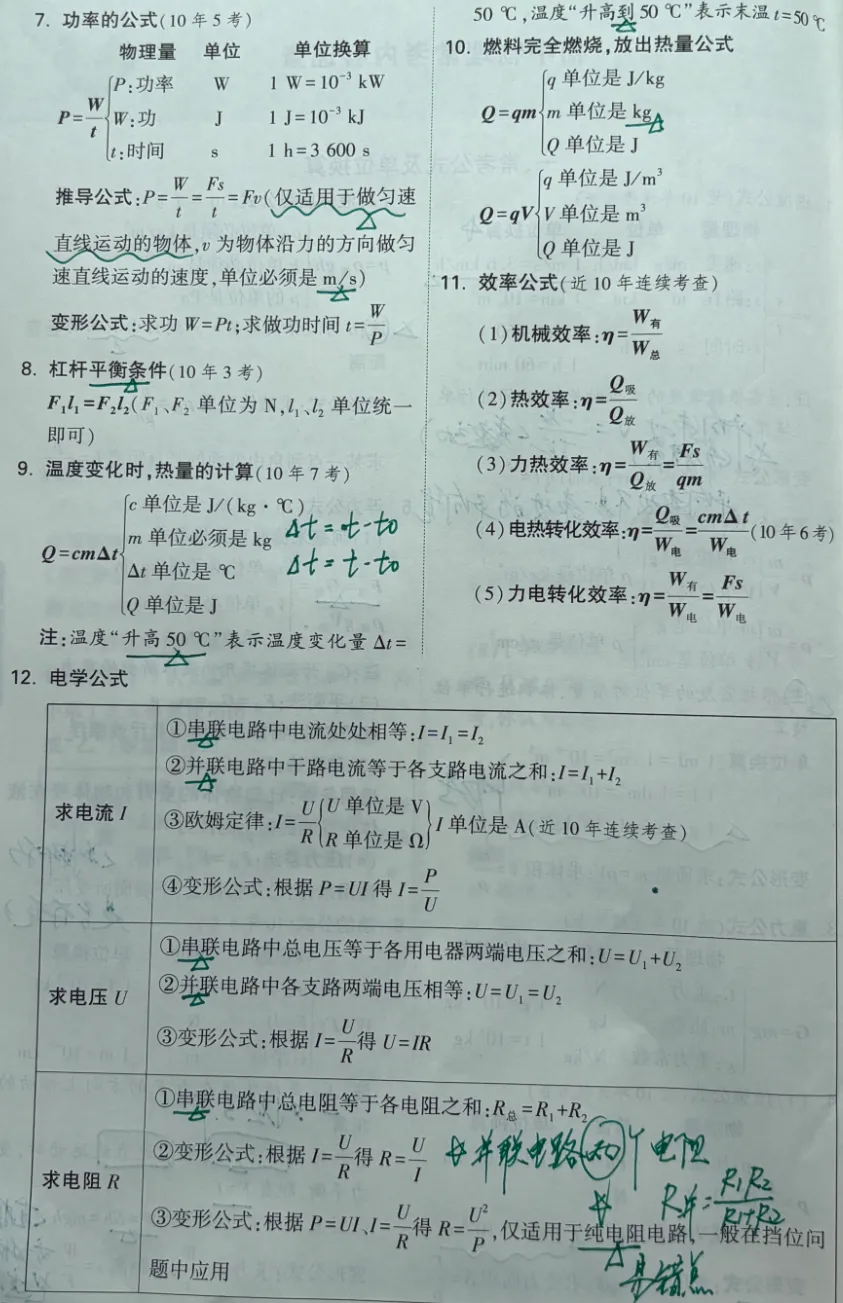 7. 功率的公式(10年5考)
物理量 单位 单位换算
P=W/t
P:功率 W 1 W=10⁻³ kW
W:功 J 1 J=10⁻³ kJ
t:时间 s 1 h=3 600 s
推导公式:P=W/t=Fs/t=Fv(仅适用于做匀速
直线运动的物体,v为物体沿力的方向做匀
速直线运动的速度,单位必须是m/s)
变形公式:求功W=Pt;求做功时间t=W/P
8. 杠杆平衡条件(10年3考)
F₁l₁=F₂l₂(F₁、F₂单位为N,l₁、l₂单位统一
即可)
9. 温度变化时,热量的计算(10年7考)
Q=cmΔt
c单位是J/(kg·℃)
m单位必须是kg
Δt单位是℃
Q单位是J
Δt=t-t0
Δt=t-t0
注:温度“升高50 ℃”表示温度变化量Δt=
50 ℃,温度“升高到50 ℃”表示末温t=50℃
10. 燃料完全燃烧,放出热量公式
Q=qm
q单位是J/kg
m单位是kg
Q单位是J
Q=qV
q单位是J/m³
V单位是m³
Q单位是J
11. 效率公式(近10年连续考查)
(1)机械效率:η=W有/W总
(2)热效率:η=Q吸/Q放
(3)力热效率:η=W有/Q放=Fs/qm
(4)电热转化效率:η=Q吸/W电=cmΔt/W电(10年6考)
(5)力电转化效率:η=W有/W电=Fs/W电
12. 电学公式
求电流I
①串联电路中电流处处相等:I=I₁=I₂
②并联电路中干路电流等于各支路电流之和:I=I₁+I₂
③欧姆定律:I=U/R{U单位是V R单位是Ω}I单位是A(近10年连续考查)
④变形公式:根据P=UI得I=P/U
求电压U
①串联电路中总电压等于各用电器两端电压之和:U=U₁+U₂
②并联电路中各支路两端电压相等:U=U₁=U₂
③变形公式:根据I=U/R得U=IR
求电阻R
①串联电路中总电阻等于各电阻之和:R总=R₁+R₂
②变形公式:根据I=U/R得R=U/I
并联电路 两个电阻
R并=R1R2/R1+R2
③变形公式:根据P=UI、I=U/R得R=U²/P,仅适用于纯电阻电路,一般在挡位问
题中应用
易错点